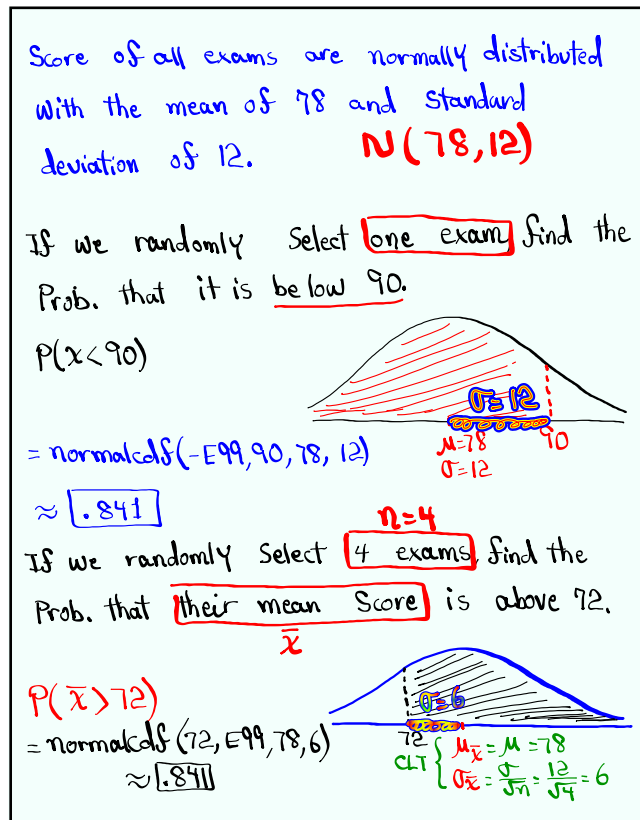 Score of all exams are normally distributed
with the mean of 78 and standard
deviation of 12. N(78,12)
If we randomly Select one exam, find the
Prob. that it is below 90.
P(x<90)
σ=12
μ=78 90
σ=12
= normalcdf(-E99,90,78,12)
≈ .841
n=4
If we randomly Select 4 exams, find the
Prob. that their mean Score is above 72.
x̄
P(x̄>72)
σ=6
= normalcdf(72,E99,78,6)
≈ .841
72
CLT { μx̄ = μ = 78
σx̄ = σ/√n = 12/√4 = 6